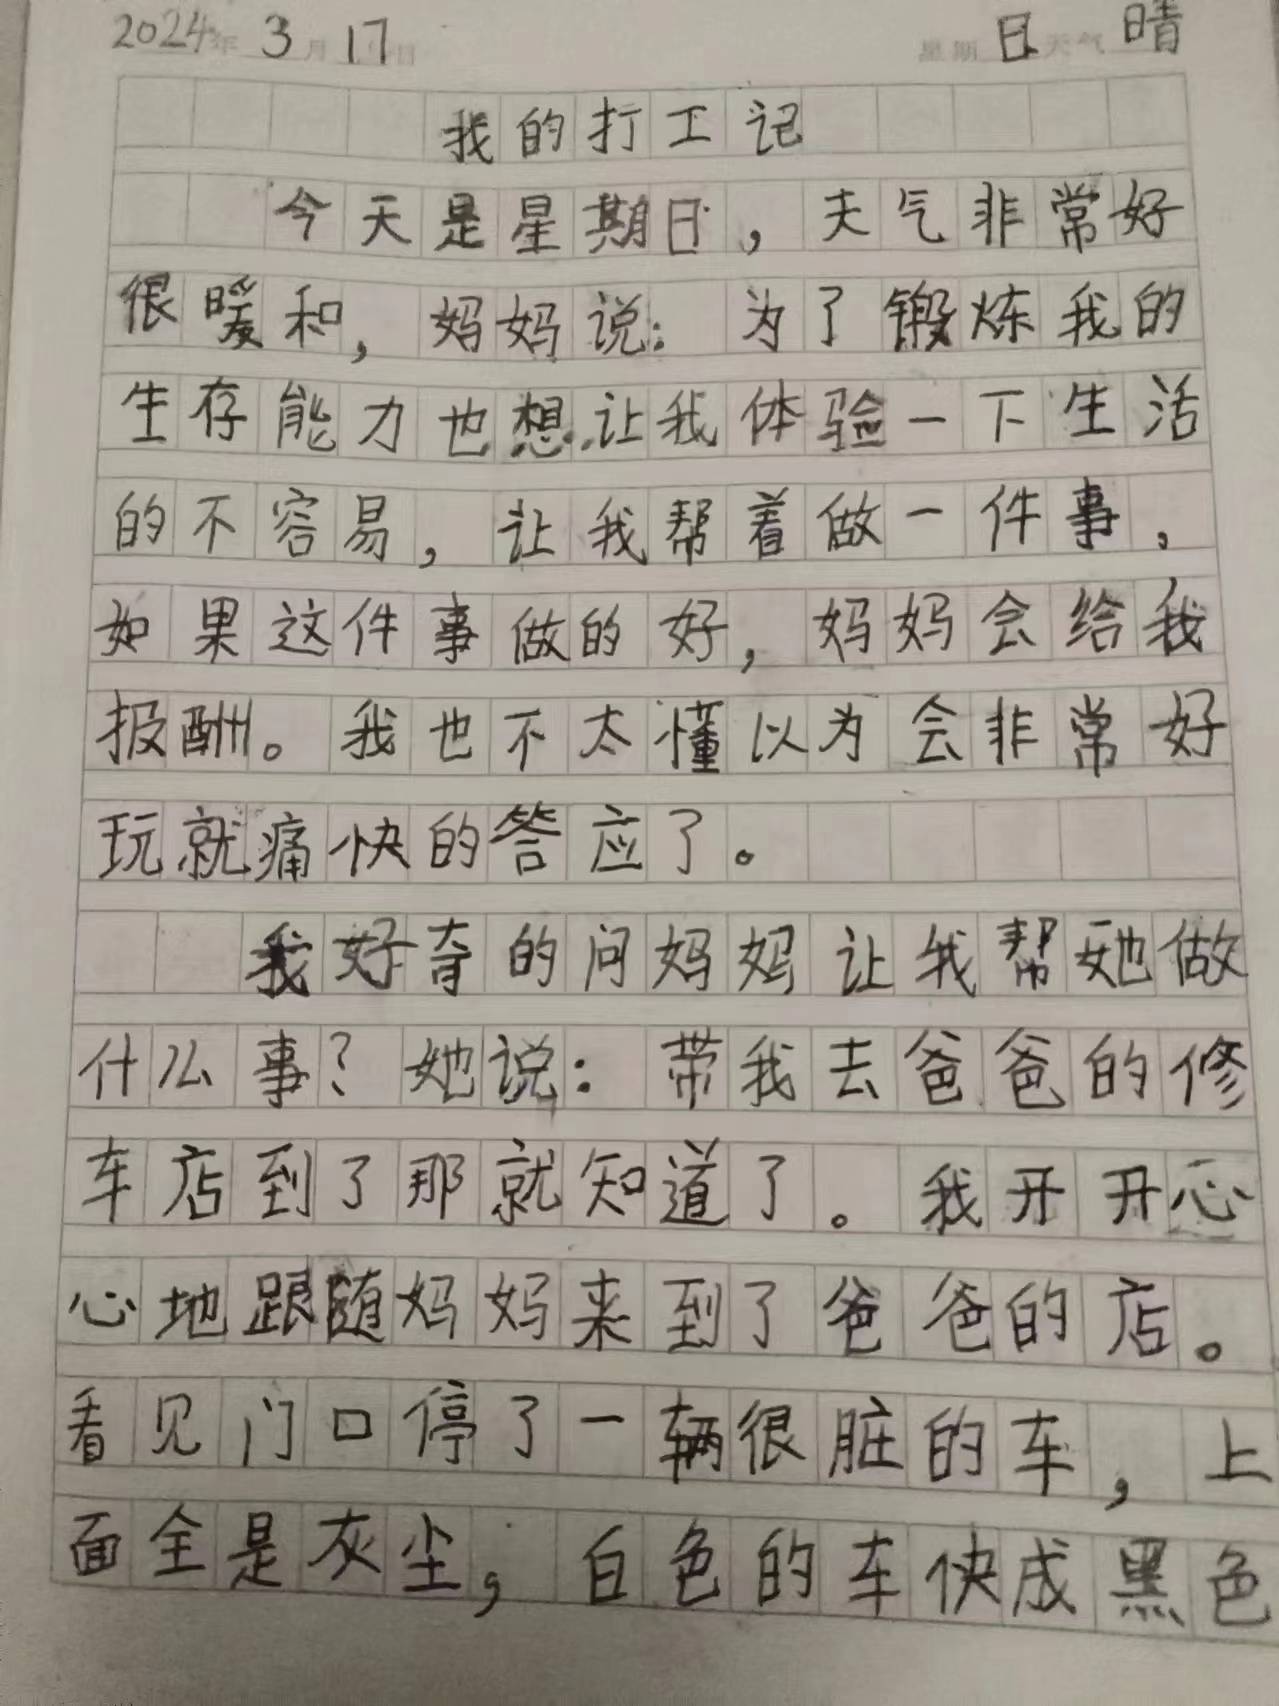 2024年3月17日 星期日 天气晴
我的打工记
今天是星期日，天气非常好
很暖和，妈妈说：为了锻炼我的
生存能力也想让我体验一下生活
的不容易，让我帮着做一件事，
如果这件事做的好，妈妈会给我
报酬。我也不太懂以为会非常好
玩就痛快的答应了。
我好奇的问妈妈让我帮她做
什么事？她说：带我去爸爸的修
车店到了那就知道了。我开开心
心地跟随妈妈来到了爸爸的店。
看见门口停了一辆很脏的车，上
面全是灰尘，白色的车快成黑色